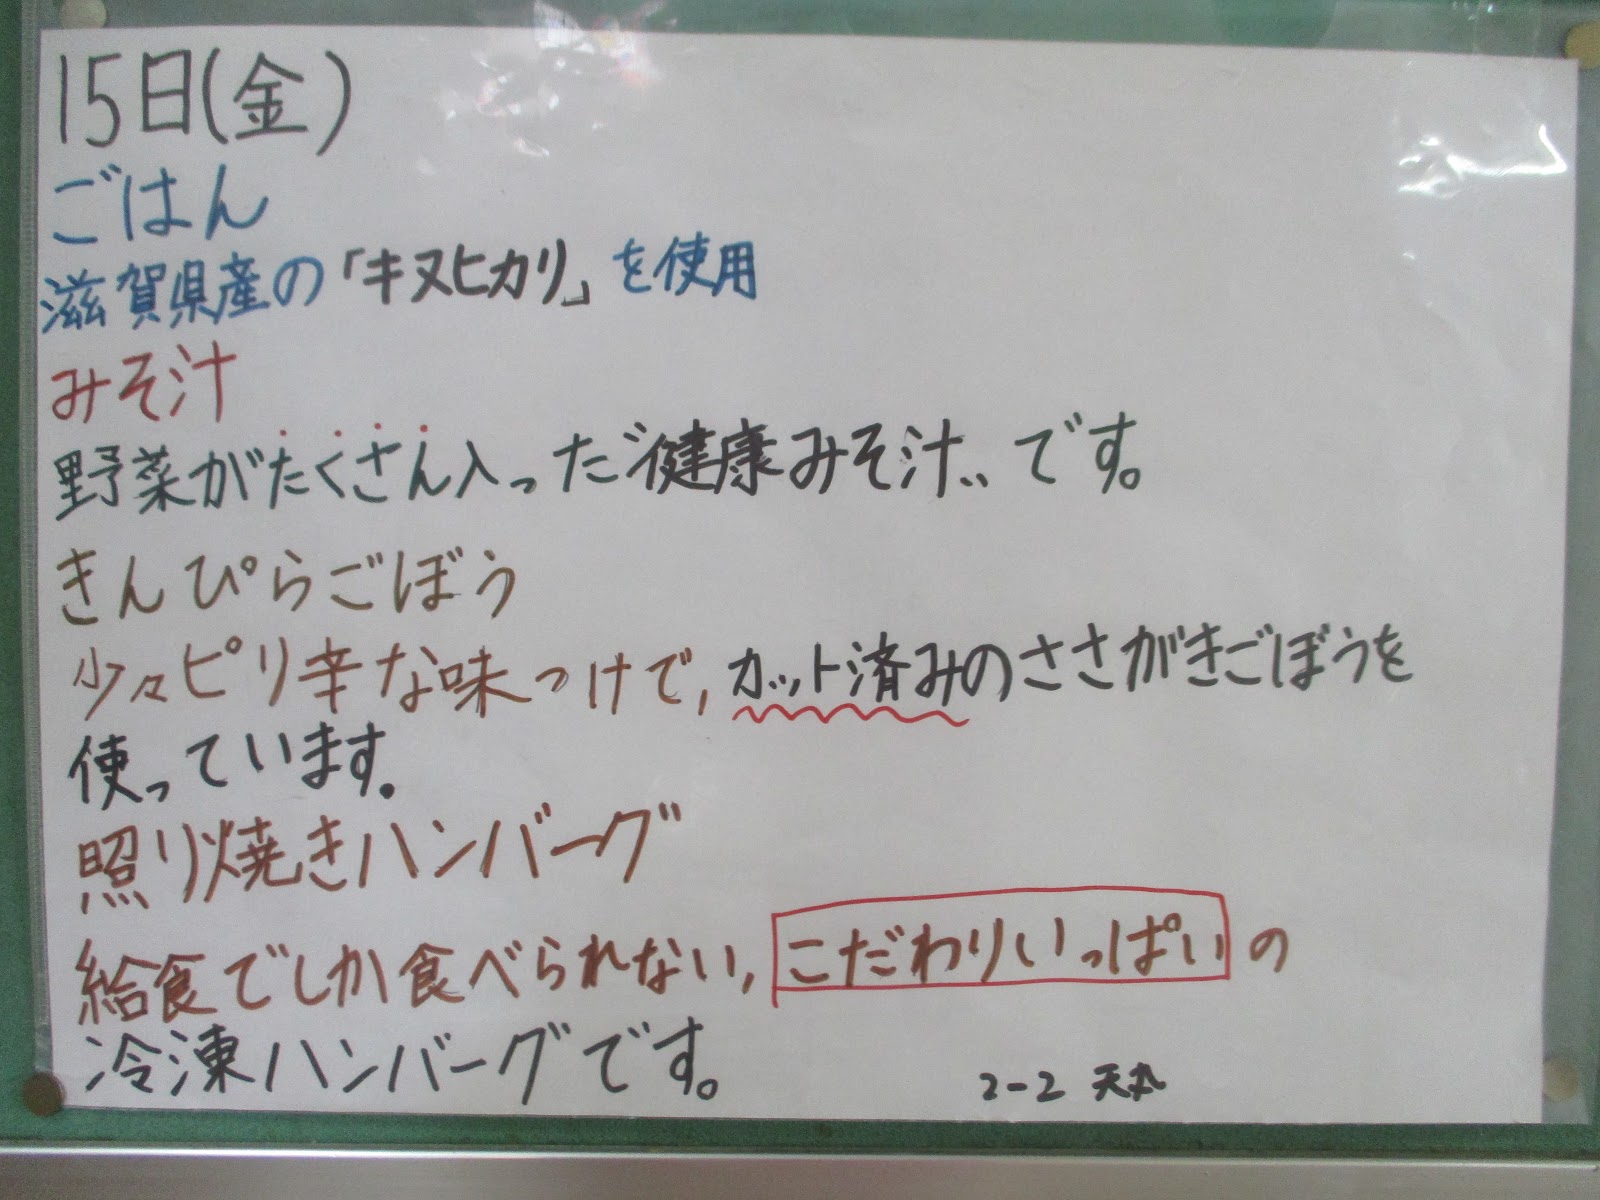 15日(金)
ごはん
滋賀県産の「キヌヒカリ」を使用
みそ汁
野菜がたくさん入った〝健康みそ汁〟です。
きんぴらごぼう
少々ピリ辛な味つけで,カット済みのささがきごぼうを
使っています。
照り焼きハンバーグ
給食でしか食べられない,こだわりいっぱいの
冷凍ハンバーグです。
2-2 天丸